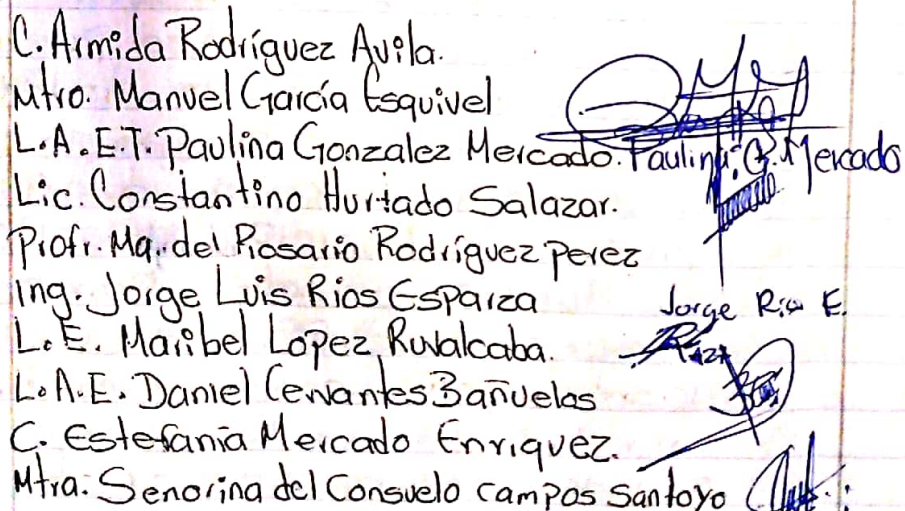 C. Armida Rodríguez Avila.
Mtro. Manuel García Esquivel
L.A.E.T. Paulina Gonzalez Mercado. Paulina G. Mercado
Lic. Constantino Hurtado Salazar.
Profr. Ma. del Rosario Rodríguez perez
Ing. Jorge Luis Rios Esparza Jorge Rios E.
L.E. Maribel Lopez Ruvalcaba.
L.A.E. Daniel Cervantes Bañuelos
C. Estefanía Mercado Enriquez.
Mtra. Senorina del Consuelo campos Santoyo